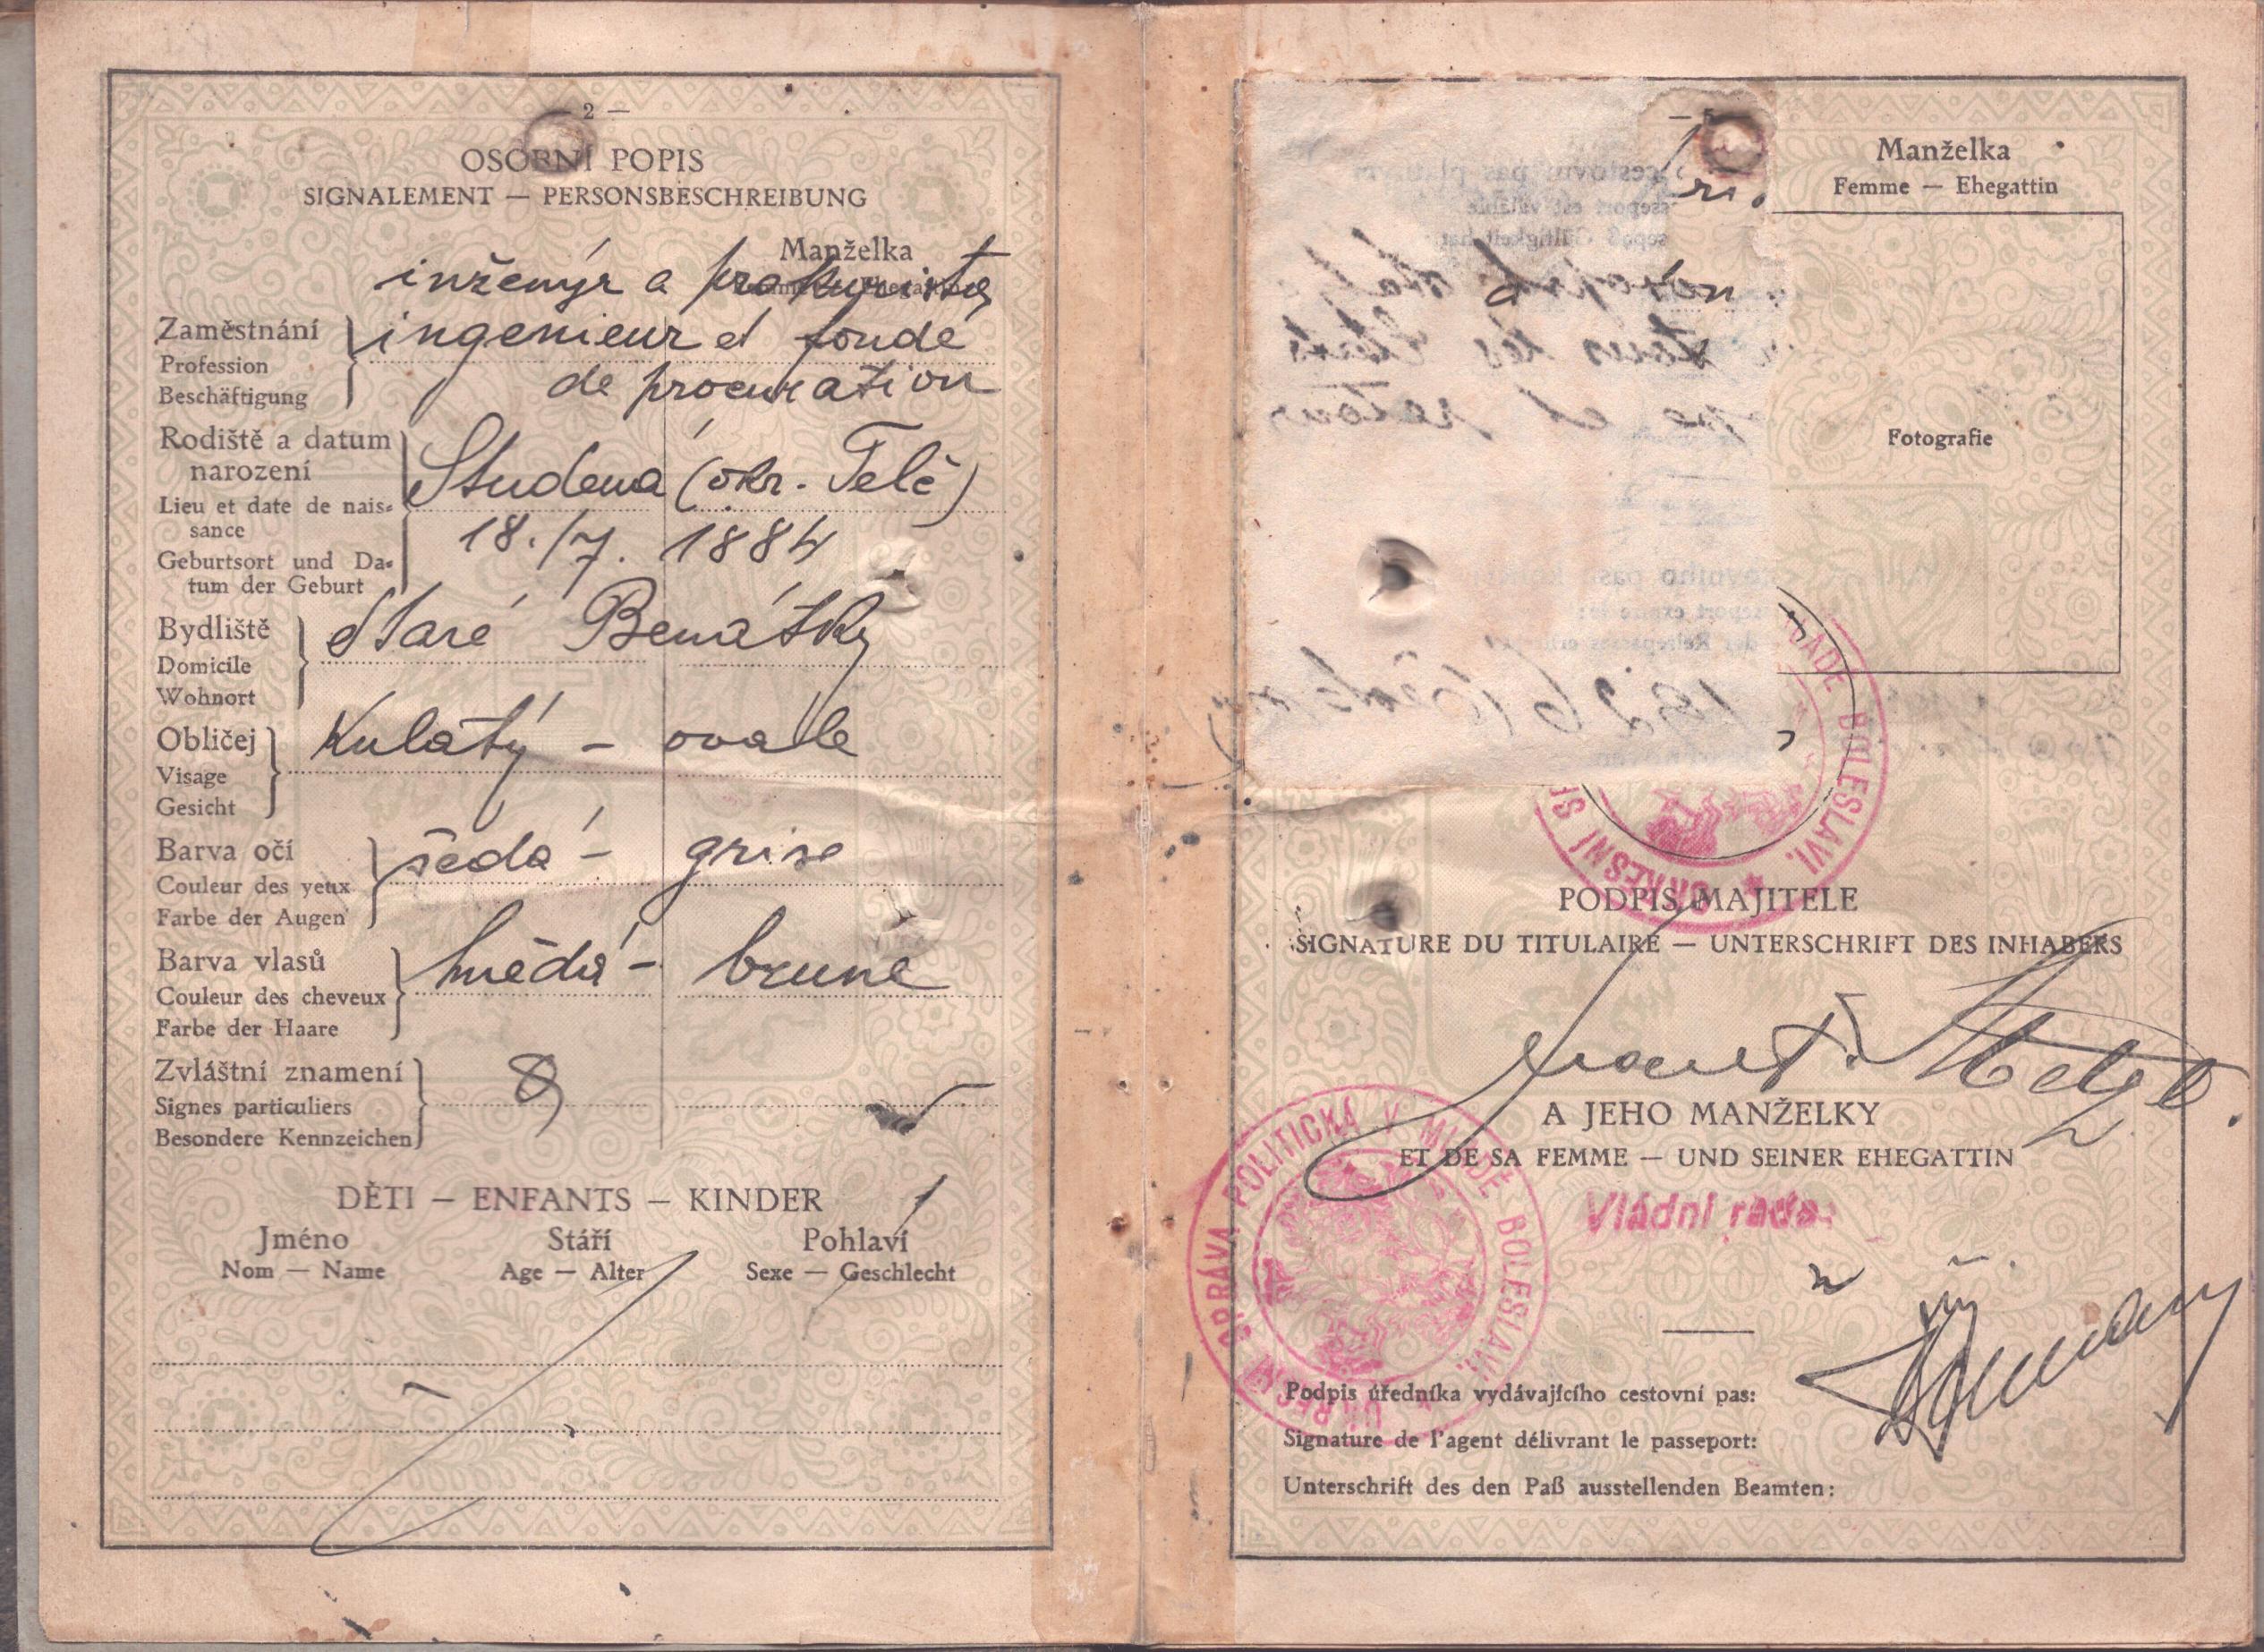 — 2 —
OSOBNÍ POPIS
SIGNALEMENT — PERSONSBESCHREIBUNG
Manželka
inženýr a prokurista
Zaměstnání
Profession
Beschäftigung
ingenieur et fondé
de procuration
Rodiště a datum
narození
Lieu et date de nais-
sance
Geburtsort und Da-
tum der Geburt
Studená (okr. Telč)
18./7. 1884
Bydliště
Domicile
Wohnort
Staré Benátky
Obličej
Visage
Gesicht
Kulatý – ovale
Barva očí
Couleur des yeux
Farbe der Augen
šedá – grise
Barva vlasů
Couleur des cheveux
Farbe der Haare
hnědá – brune
Zvláštní znamení
Signes particuliers
Besondere Kennzeichen
DĚTI — ENFANTS — KINDER
Jméno Stáří Pohlaví
Nom — Name Age — Alter Sexe — Geschlecht
Manželka
Femme — Ehegattin
Fotografie
MLADÉ BOLESLAVI. OKRESNÍ
PODPIS MAJITELE
SIGNATURE DU TITULAIRE — UNTERSCHRIFT DES INHABERS
A JEHO MANŽELKY
ET DE SA FEMME — UND SEINER EHEGATTIN
OKRESNÍ SPRÁVA POLITICKÁ V MLADÉ BOLESLAVI.
Vládní rada:
Podpis úředníka vydávajícího cestovní pas:
Signature de l'agent délivrant le passeport:
Unterschrift des den Paß ausstellenden Beamten: